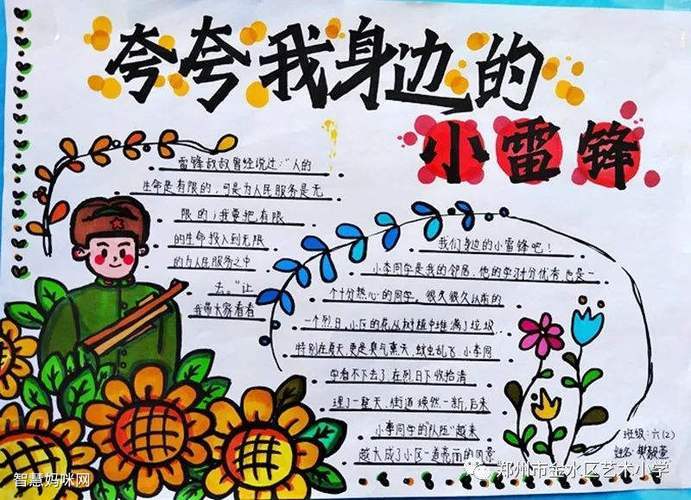 夸夸我身边的
小雷锋
雷锋叔叔曾经说过:“人的
生命是有限的,可是为人民服务是无
限的,我要把有限
的生命投入到无限
的为人民服务之中
去。”让
我带大家看看
我们身边的小雷锋吧!
小李同学是我的邻居,他的学习十分优秀,也是一
个十分热心的同学。很久很久以前的
一个假日,小区的花丛树植中堆满了垃圾,
特别在夏天,更是臭气熏天,蚊虫乱飞,小李同
学看不下去了,在烈日下收拾清
理了一整天,街道焕然一新,后来
小李同学的“队伍”越来
越大成了小区一道亮丽的风景
班级:六(2)
姓名:
智慧妈咪网
郑州市金水区艺术小学